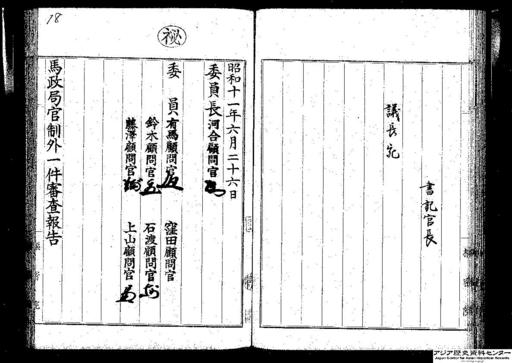 書記官長
議長宛
18
㊙
昭和十一年六月二十六日
委員長 河合顧問官
委員 有馬顧問官 窪田顧問官
鈴木顧問官 石渡顧問官
藤澤顧問官 上山顧問官
馬政局官制外一件審査報告
アジア歴史資料センター
Japan Center for Asian Historical Records